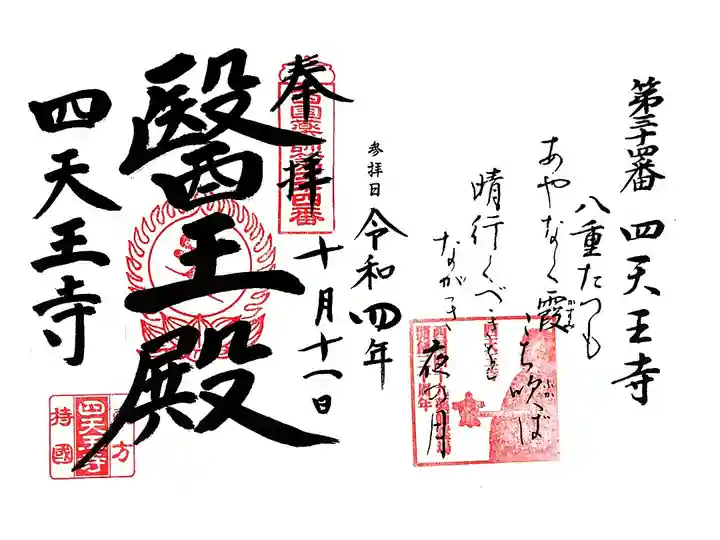 第三十四番 四天王寺
八重たつも
あやなく霞
かすみ
ふか
晴行くべき
ながつき
夜の月
参拝日 令和四年
十月十一日
奉拝
西国薬師第三十四番
醫王殿
四天王寺
四天王寺
東方
持國